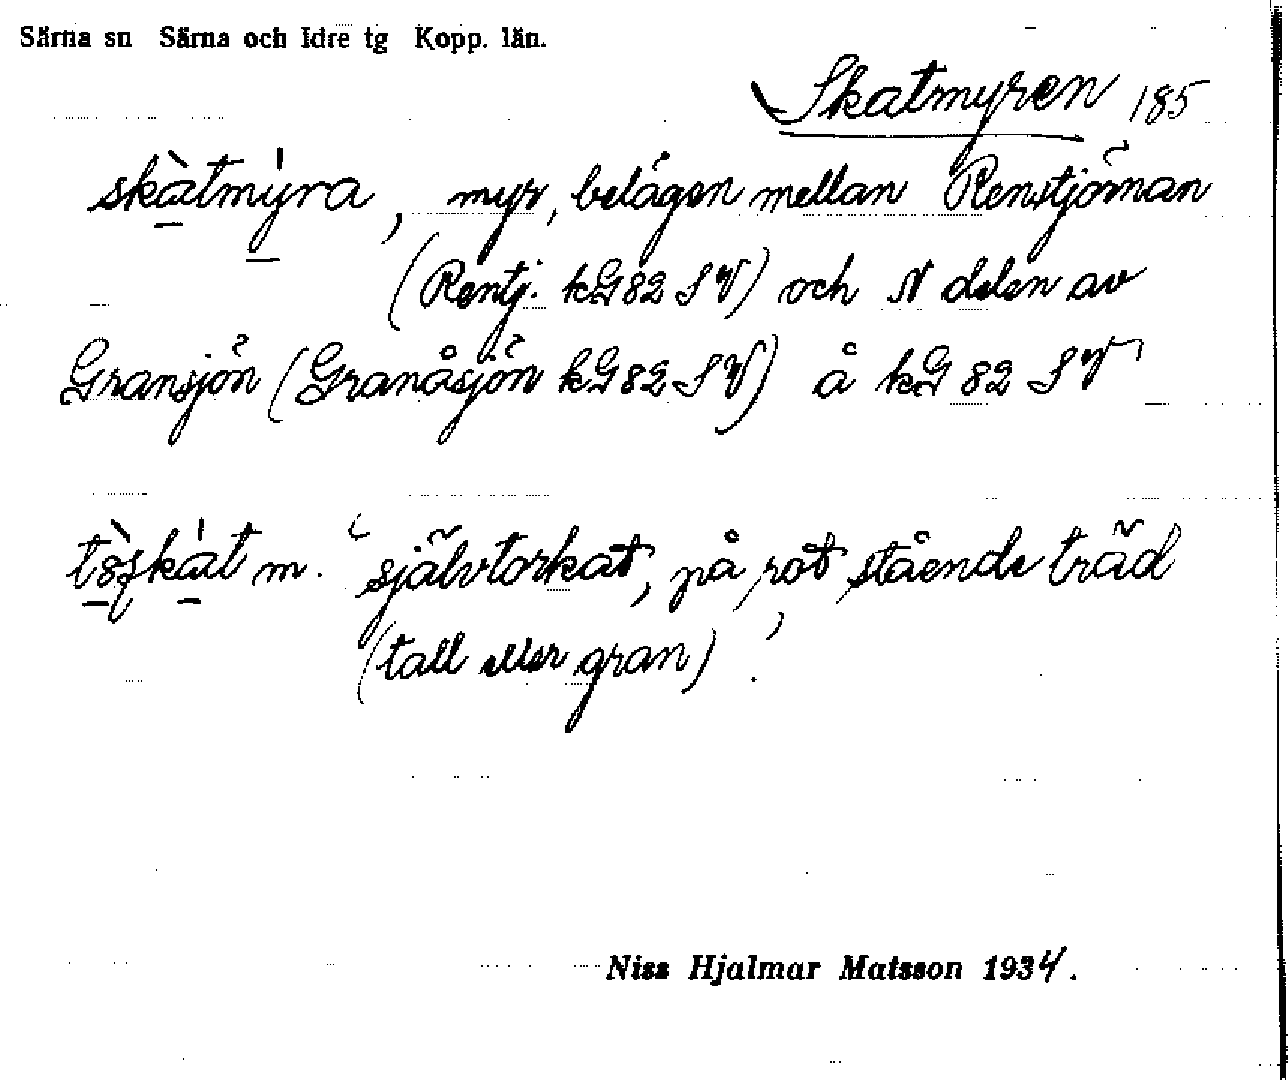 Särna sn Särna och Idre tg Kopp. län.
Skatmyren 185
skàtmýra, myr, belägen mellan Renstjörnan
(Rentj. kG82 SV) och N delen av
Gransjön (Granåsjön kG82 SV) å kG 82 SV
m. 'självtorkat, på rot stående träd
(tall eller gran)'.
Niss Hjalmar Matsson 1934.